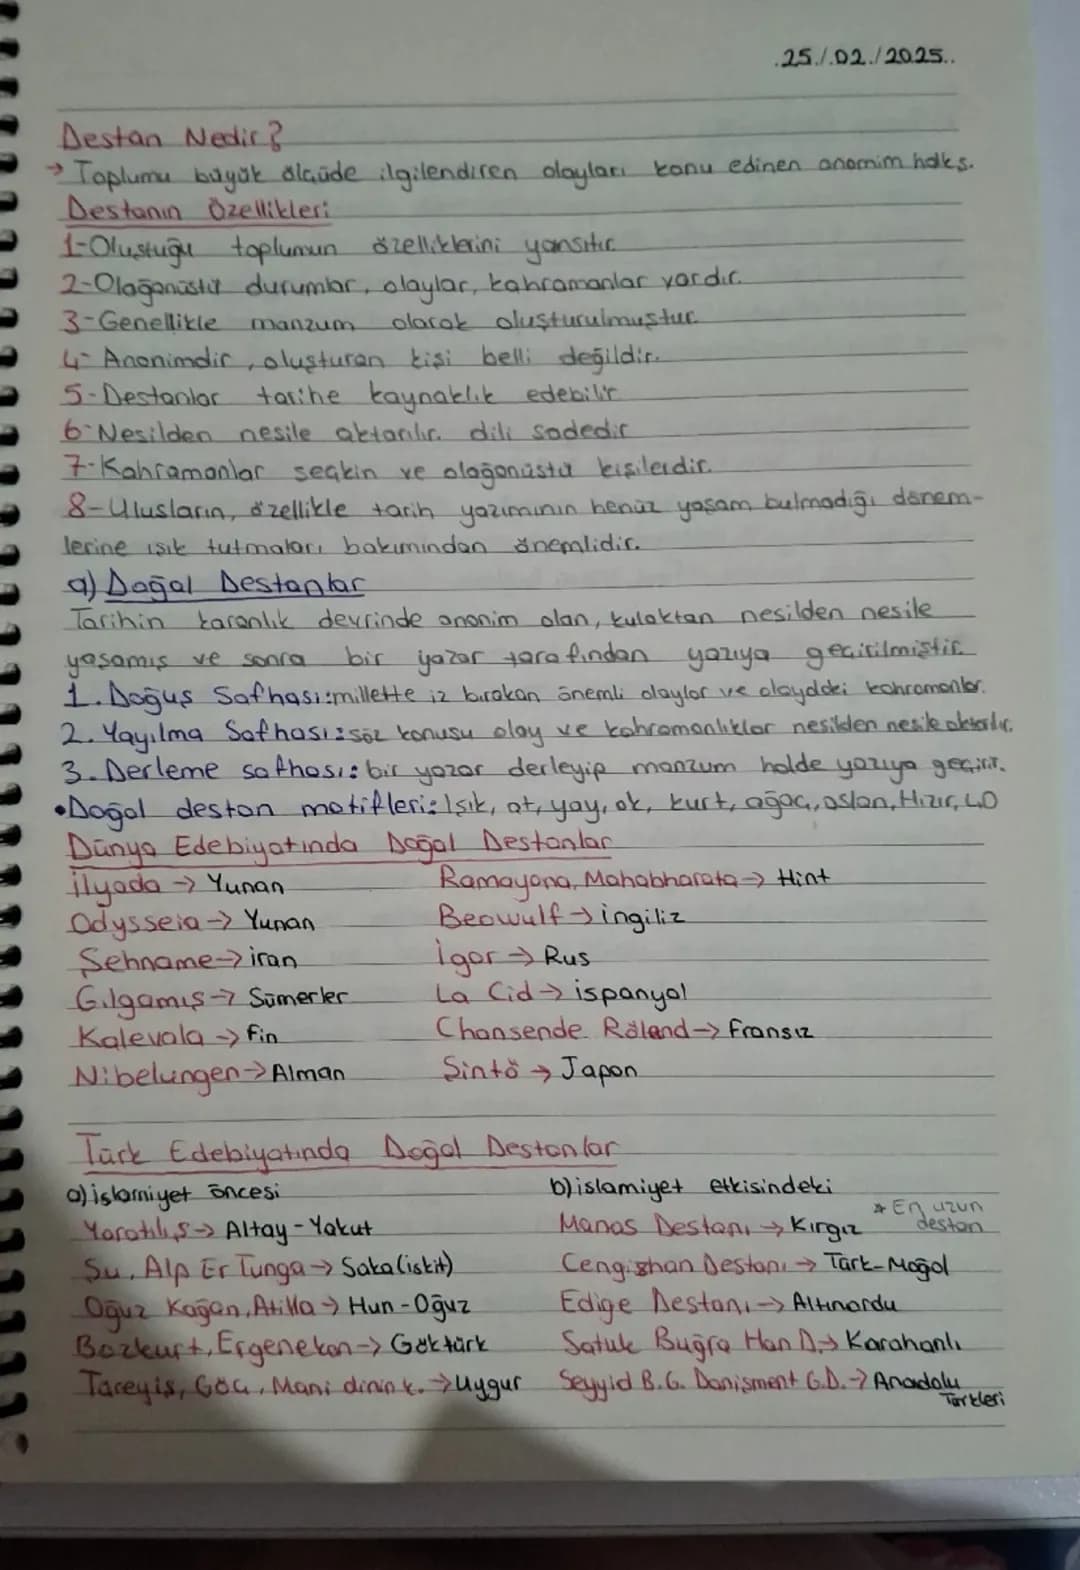 .25./.02./2025..
Destan Nedir?
→ Toplumu büyük ölçüde ilgilendiren olayları konu edinen anonim halks.
Destanın Özellikleri
1-Oluştuğu toplumun özelliklerini yansıtır
2-Olağanüstü durumlar, olaylar, kahramanlar vardır.
3-Genellikle manzum olarak oluşturulmuştur.
4-Anonimdir, oluşturan kişi belli değildir.
5-Destanlar tarihe kaynaklık edebilir
6-Nesilden nesile aktarılır. dili sadedir
7-Kahramanlar seçkin ve olağanüstü kişilerdir.
8-Ulusların, özellikle tarih yazımının henüz yaşam bulmadığı dönem-
lerine ışık tutmaları bakımından önemlidir.
a) Doğal Destanlar
Tarihin karanlık devrinde anonim olan, kulaktan nesilden nesile
yaşamış ve sonra bir yazar tarafından yazıya geçirilmiştir.
1. Doğuş Safhası:millette iz bırakan önemli olaylar ve olaydaki kahramanlar.
2. Yayılma Safhası:söz konusu olay ve kahramanlıklar nesilden nesile aktarılır.
3. Derleme safhası: bir yazar derleyip manzum halde yazıya geçirir.
•Doğal destan motifleri: Işık, at, yay, ok, kurt, ağaç, aslan, Hızır, 40
Dünya Edebiyatında Doğal Destanlar
İlyada → Yunan Ramayana, Mahabharata → Hint
Odysseia → Yunan Beowulf → ingiliz
Şehname → iran İgor → Rus
Gılgamış → Sümerler La Cid → ispanyol
Kalevala → fin Chansende Röland → fransız
Nibelungen → Alman Şintö → Japon
Türk Edebiyatında Doğal Destanlar
a) islamiyet öncesi b) islamiyet etkisindeki
Yaratılış → Altay-Yakut Manas Destanı → Kırgız * En uzun destan
Şu, Alp Er Tunga → Saka (iskit) Cengizhan Destanı → Türk-Moğol
Oğuz Kağan, Atilla → Hun-Oğuz Edige Destanı → Altınordu
Bozkurt, Ergenekon → Göktürk Satuk Buğra Han D. → Karahanlı
Tareyiş, Göç, Mani dinin k. → Uygur Seyyid B.G. Danişment G.D. → Anadolu Türkleri